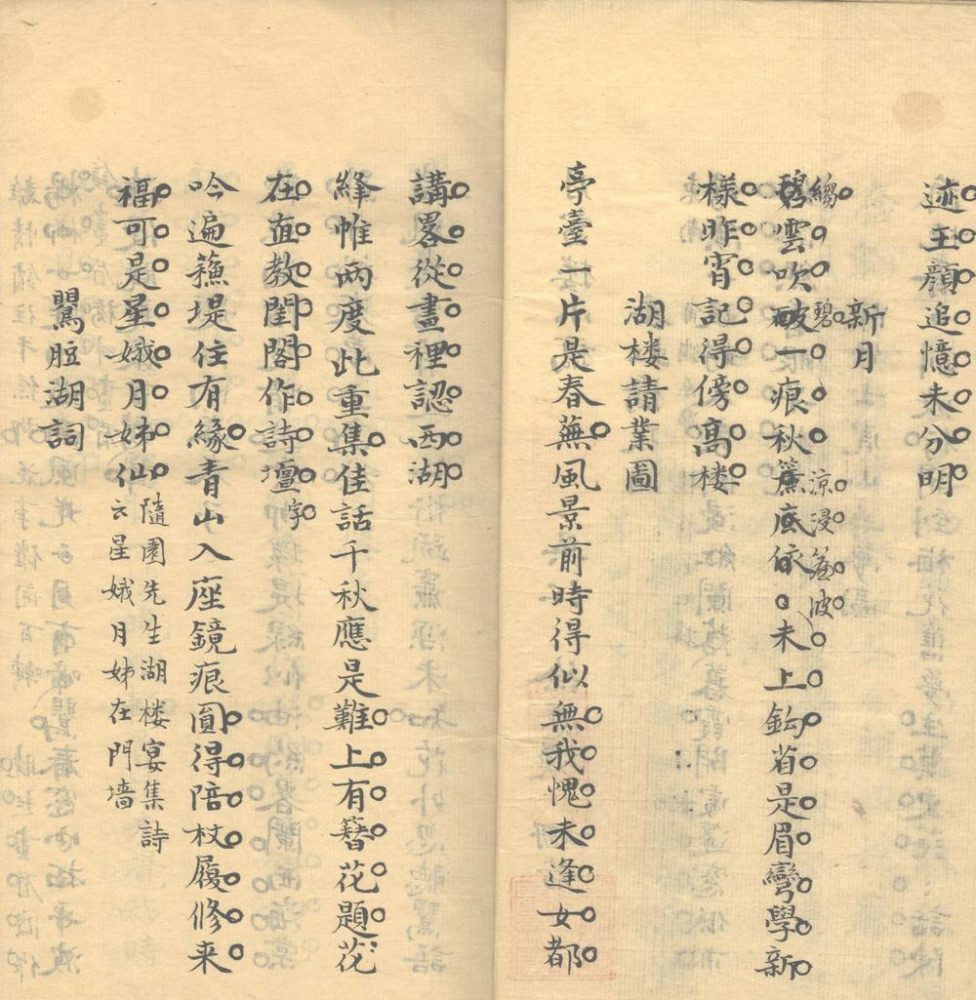 迹玉顔追憶未分明
新月
縐 碧 涼浸簾波
碧雲吹破一痕秋簾底依〻未上鈎省是眉彎學新
樣昨宵記得傍高楼
湖楼請業圖
亭臺一片是春蕪風景前時得似無我愧未逢女都
講畧從畫裡認西湖
絳帷兩度此重集佳話千秋應是難上有簪花題花
在宜教閨閣作詩壇字
吟遍蘓堤住有緣青山入座鏡痕圓得陪杖履修来
福可是星娥月姊仙
隨園先生湖楼宴集詩
云星娥月姊在門墻
鸎脰湖詞